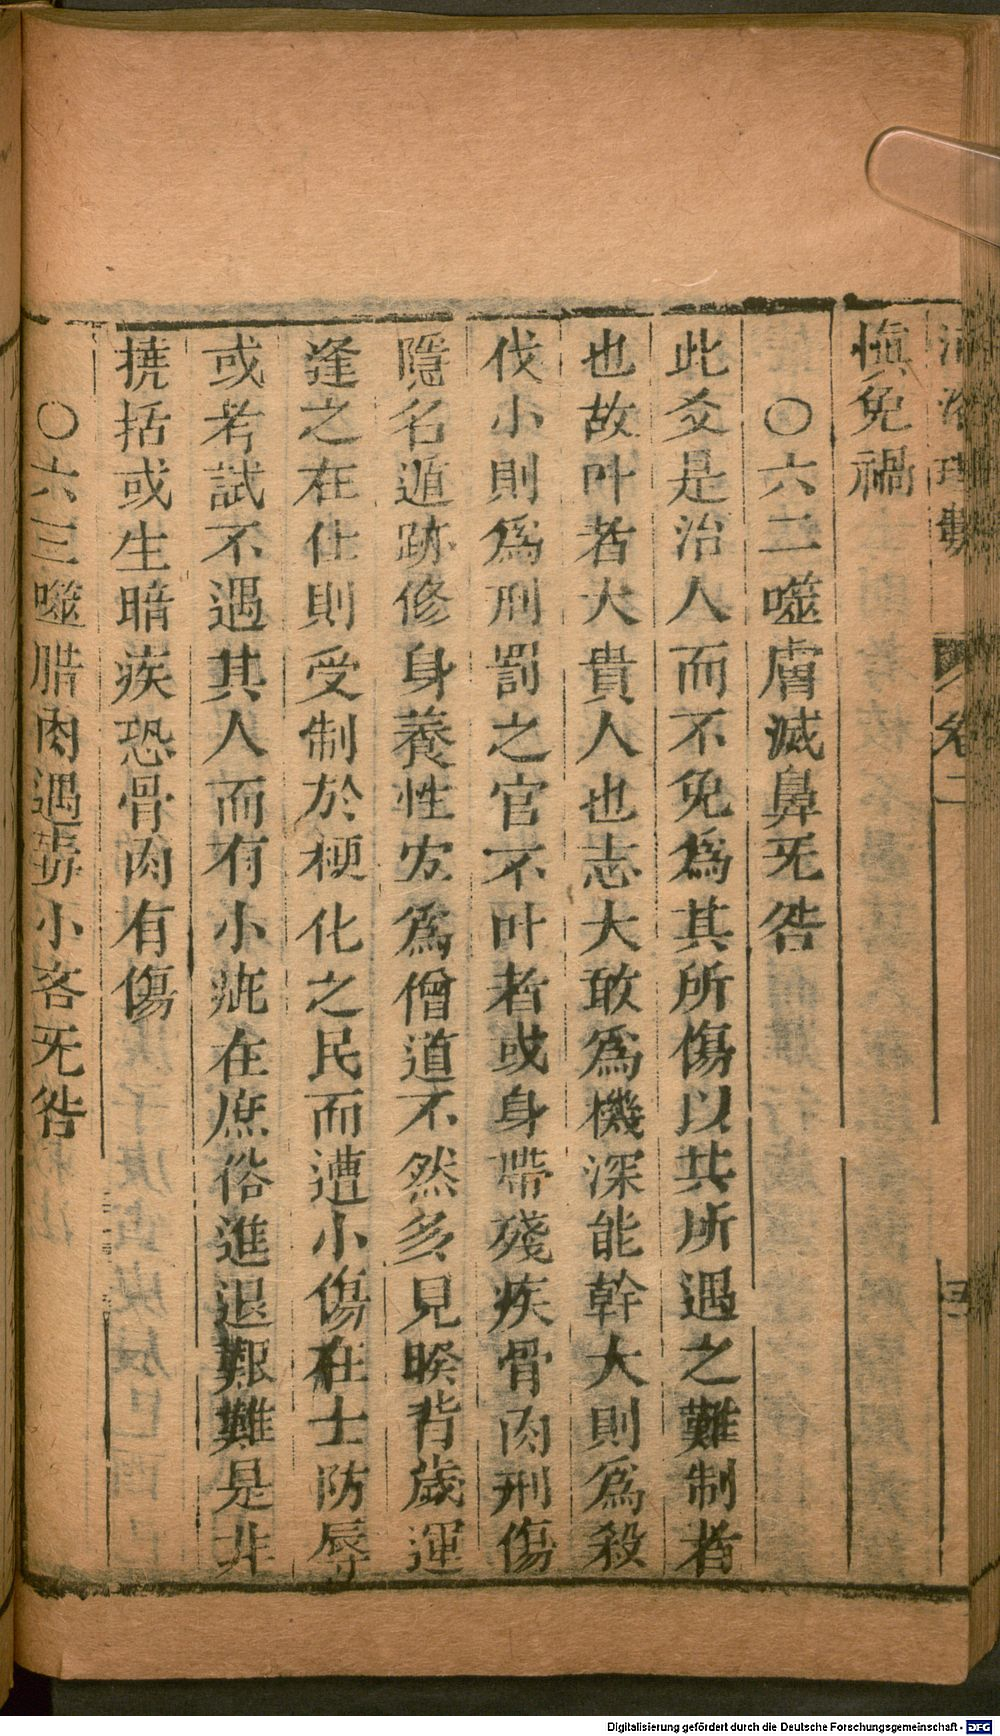 河洛理數 卷二
慎免禍
○六二噬膚滅鼻旡咎
此爻是治人而不免爲其所傷以其所遇之難制者
也故叶者大貴人也志大敢爲機深能幹大則爲殺
伐小則爲刑罰之官不叶者或身帶殘疾骨肉刑傷
隱名遁跡修身養性宐爲僧道不然多見睽背歲運
逢之在仕則受制於梗化之民而遭小傷在士防辱
或考試不遇其人而有小疵在庶俗進退艱難是非
撓括或生暗疾恐骨肉有傷
○六三噬腊肉遇毒小吝旡咎
Digitalisierung gefördert durch die Deutsche Forschungsgemeinschaft - DFG